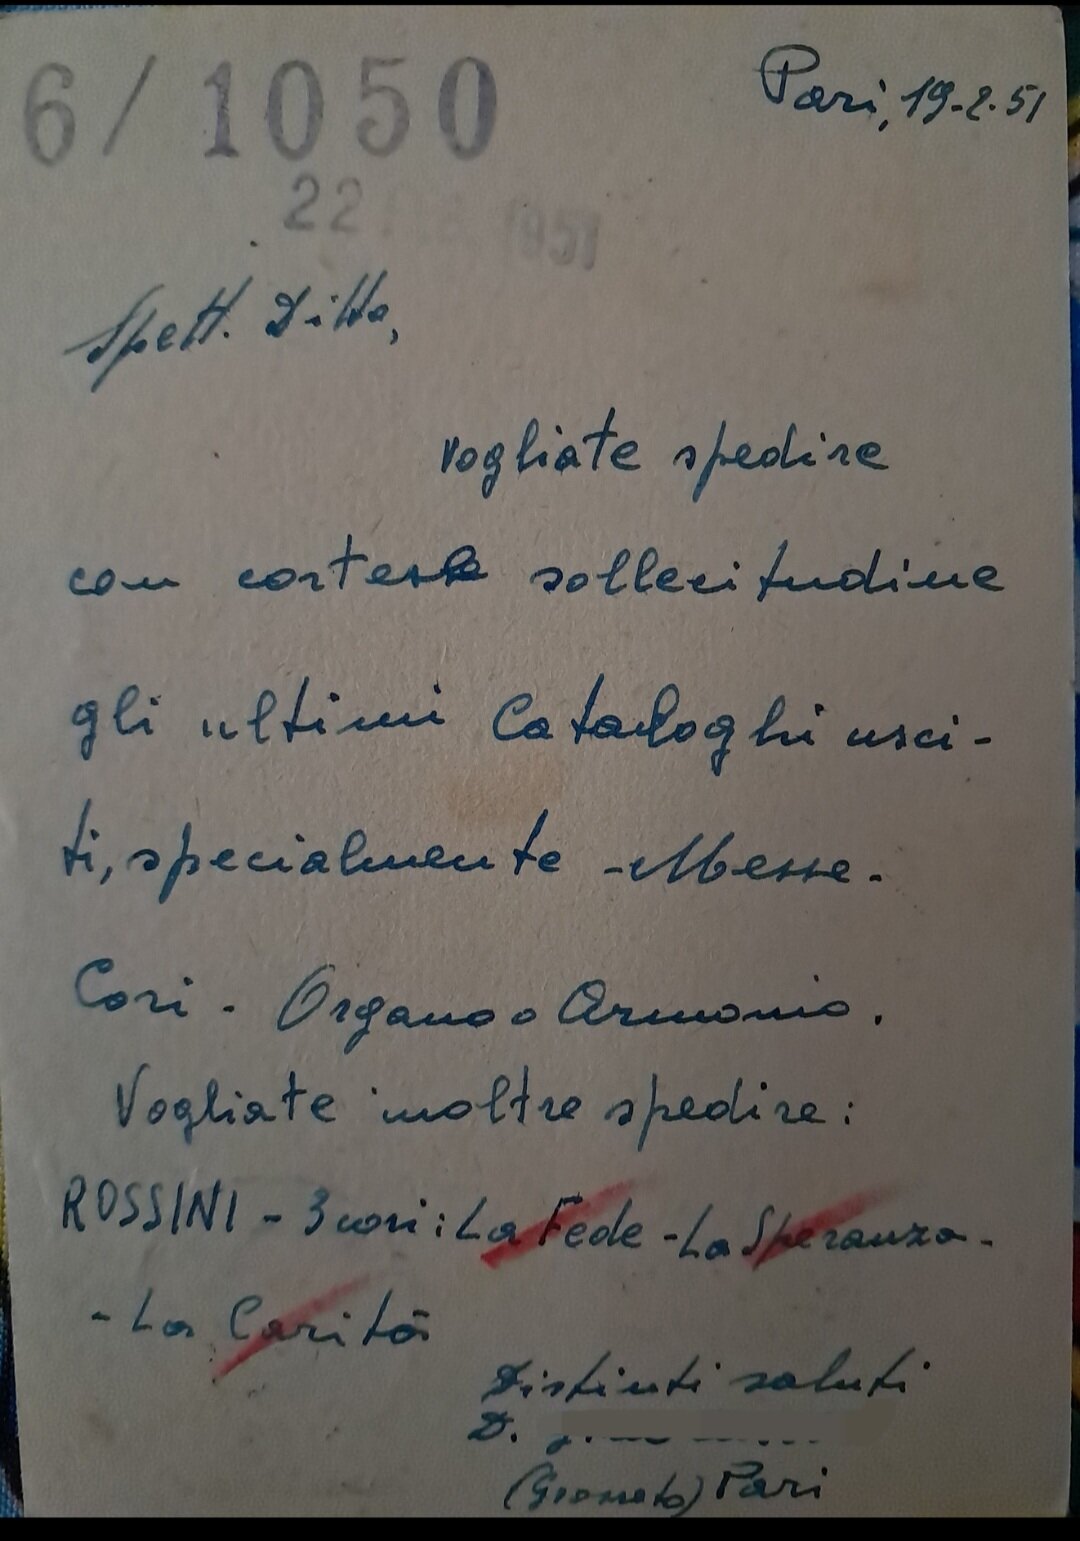 Pari, 19-2-51
6/1050
22 1951
Spett. Ditta,
vogliate spedire
con cortese sollecitudine
gli ultimi Cataloghi usci-
ti, specialmente - Messe -
Cori - Organo o Armonio.
Vogliate inoltre spedire:
ROSSINI - 3 cori: La Fede - La Speranza -
- La Carità
Distinti saluti
D.
(Grosseto) Pari